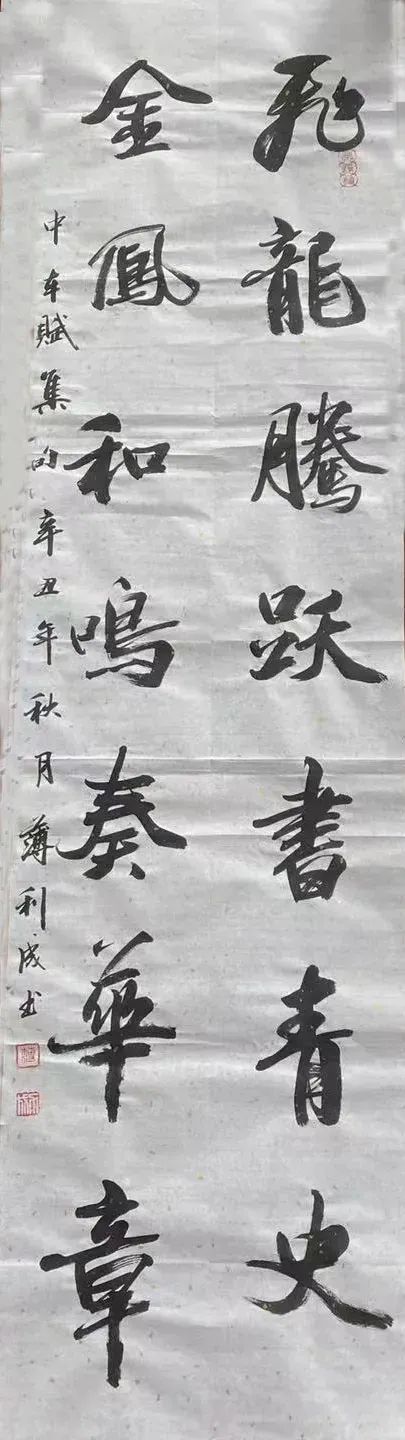 飛龍騰跃書青史
金鳳和鳴奏華章
中车賦集句辛丑年秋月薄利成书